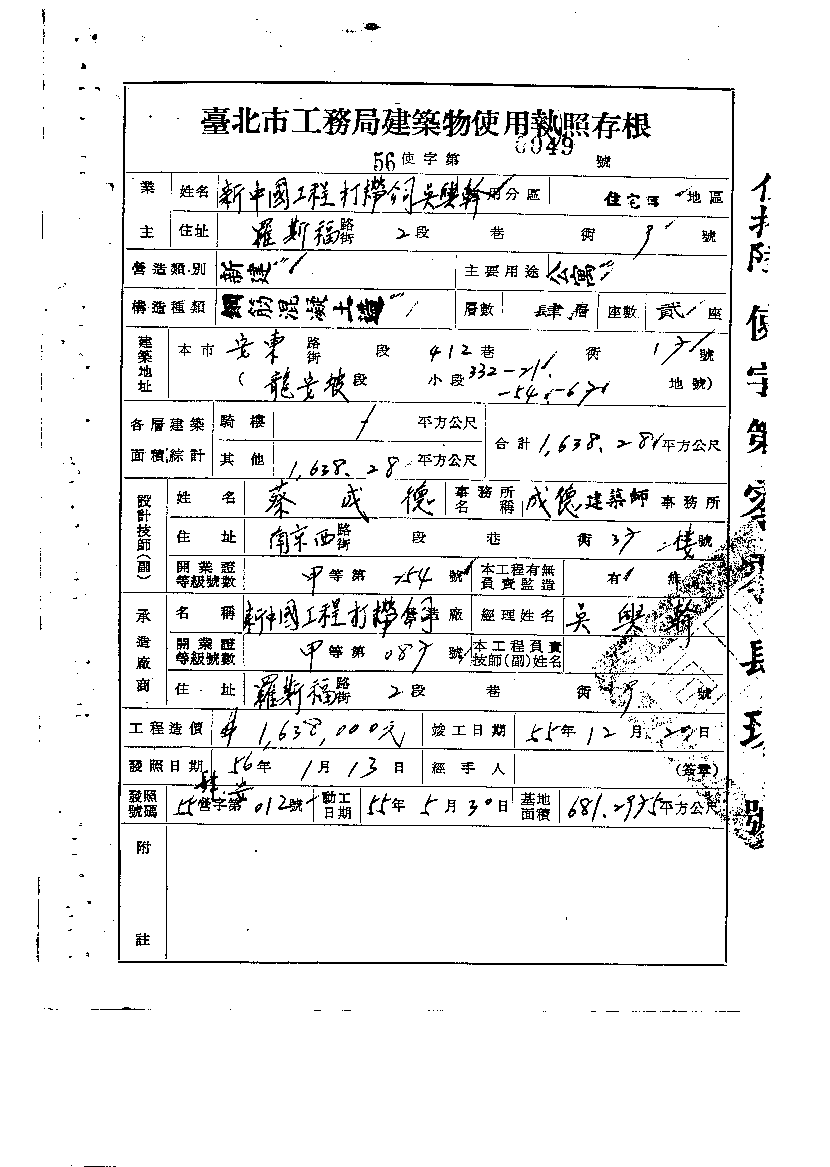 臺北市工務局建築物使用執照存根
56使字第 0049 號
業主 姓名 新中國工程打撈公司吳興幹 用分區 住宅區 地區
住址 羅斯福路街 2段 巷 街 9號
營造類別 新建 主要用途 公寓
構造種類 鋼筋混凝土造 層數 肆層 座數 貳座
建築地址 本市 安東路街 段 412巷 街 號
(龍安坡段 小段 332-21 地號)
各層建築面積綜計 騎樓 平方公尺 合計 1,638.28平方公尺
其他 1,638.28平方公尺
設計技師(副) 姓名 蔡成德 事務所名稱 成德建築師事務所
住址 南京西路街 段 巷 街 樓 號
開業證等級號數 甲等第 號 本工程有無負責監造 有
承造廠商 名稱 新中國工程打撈公司 造廠 經理姓名 吳興幹
開業證等級號數 甲等第 號 本工程負責技師(副)姓名
住址 羅斯福路街 2段 巷 街 9號
工程造價 1,638,000元 竣工日期 55年12月 日
發照日期 56年1月13日 經手人 (簽章)
發照號碼 55營字第012號 動工日期 55年5月30日 基地面積 681.2975平方公尺
附註
使字第零零肆玖號